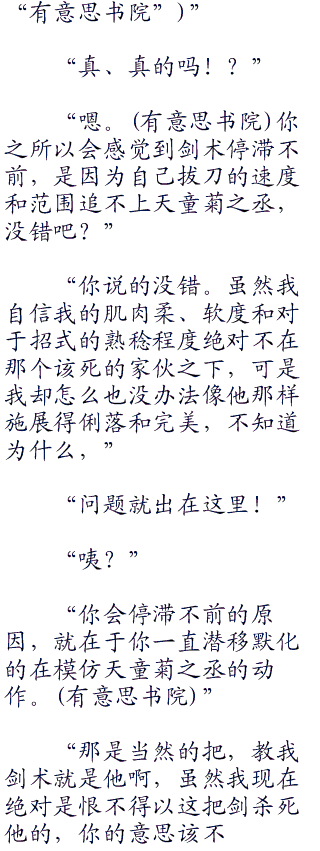 “有意思书院”)”
“真、真的吗！？”
“嗯。(有意思书院)你
之所以会感觉到剑术停滞不
前，是因为自己拔刀的速度
和范围追不上天童菊之丞，
没错吧？”
“你说的没错。虽然我
自信我的肌肉柔、软度和对
于招式的熟稔程度绝对不在
那个该死的家伙之下，可是
我却怎么也没办法像他那样
施展得俐落和完美，不知道
为什么，”
“问题就出在这里！”
“咦？”
“你会停滞不前的原
因，就在于你一直潜移默化
的在模仿天童菊之丞的动
作。(有意思书院)”
“那是当然的把，教我
剑术就是他啊，虽然我现在
绝对是恨不得以这把剑杀死
他的，你的意思该不